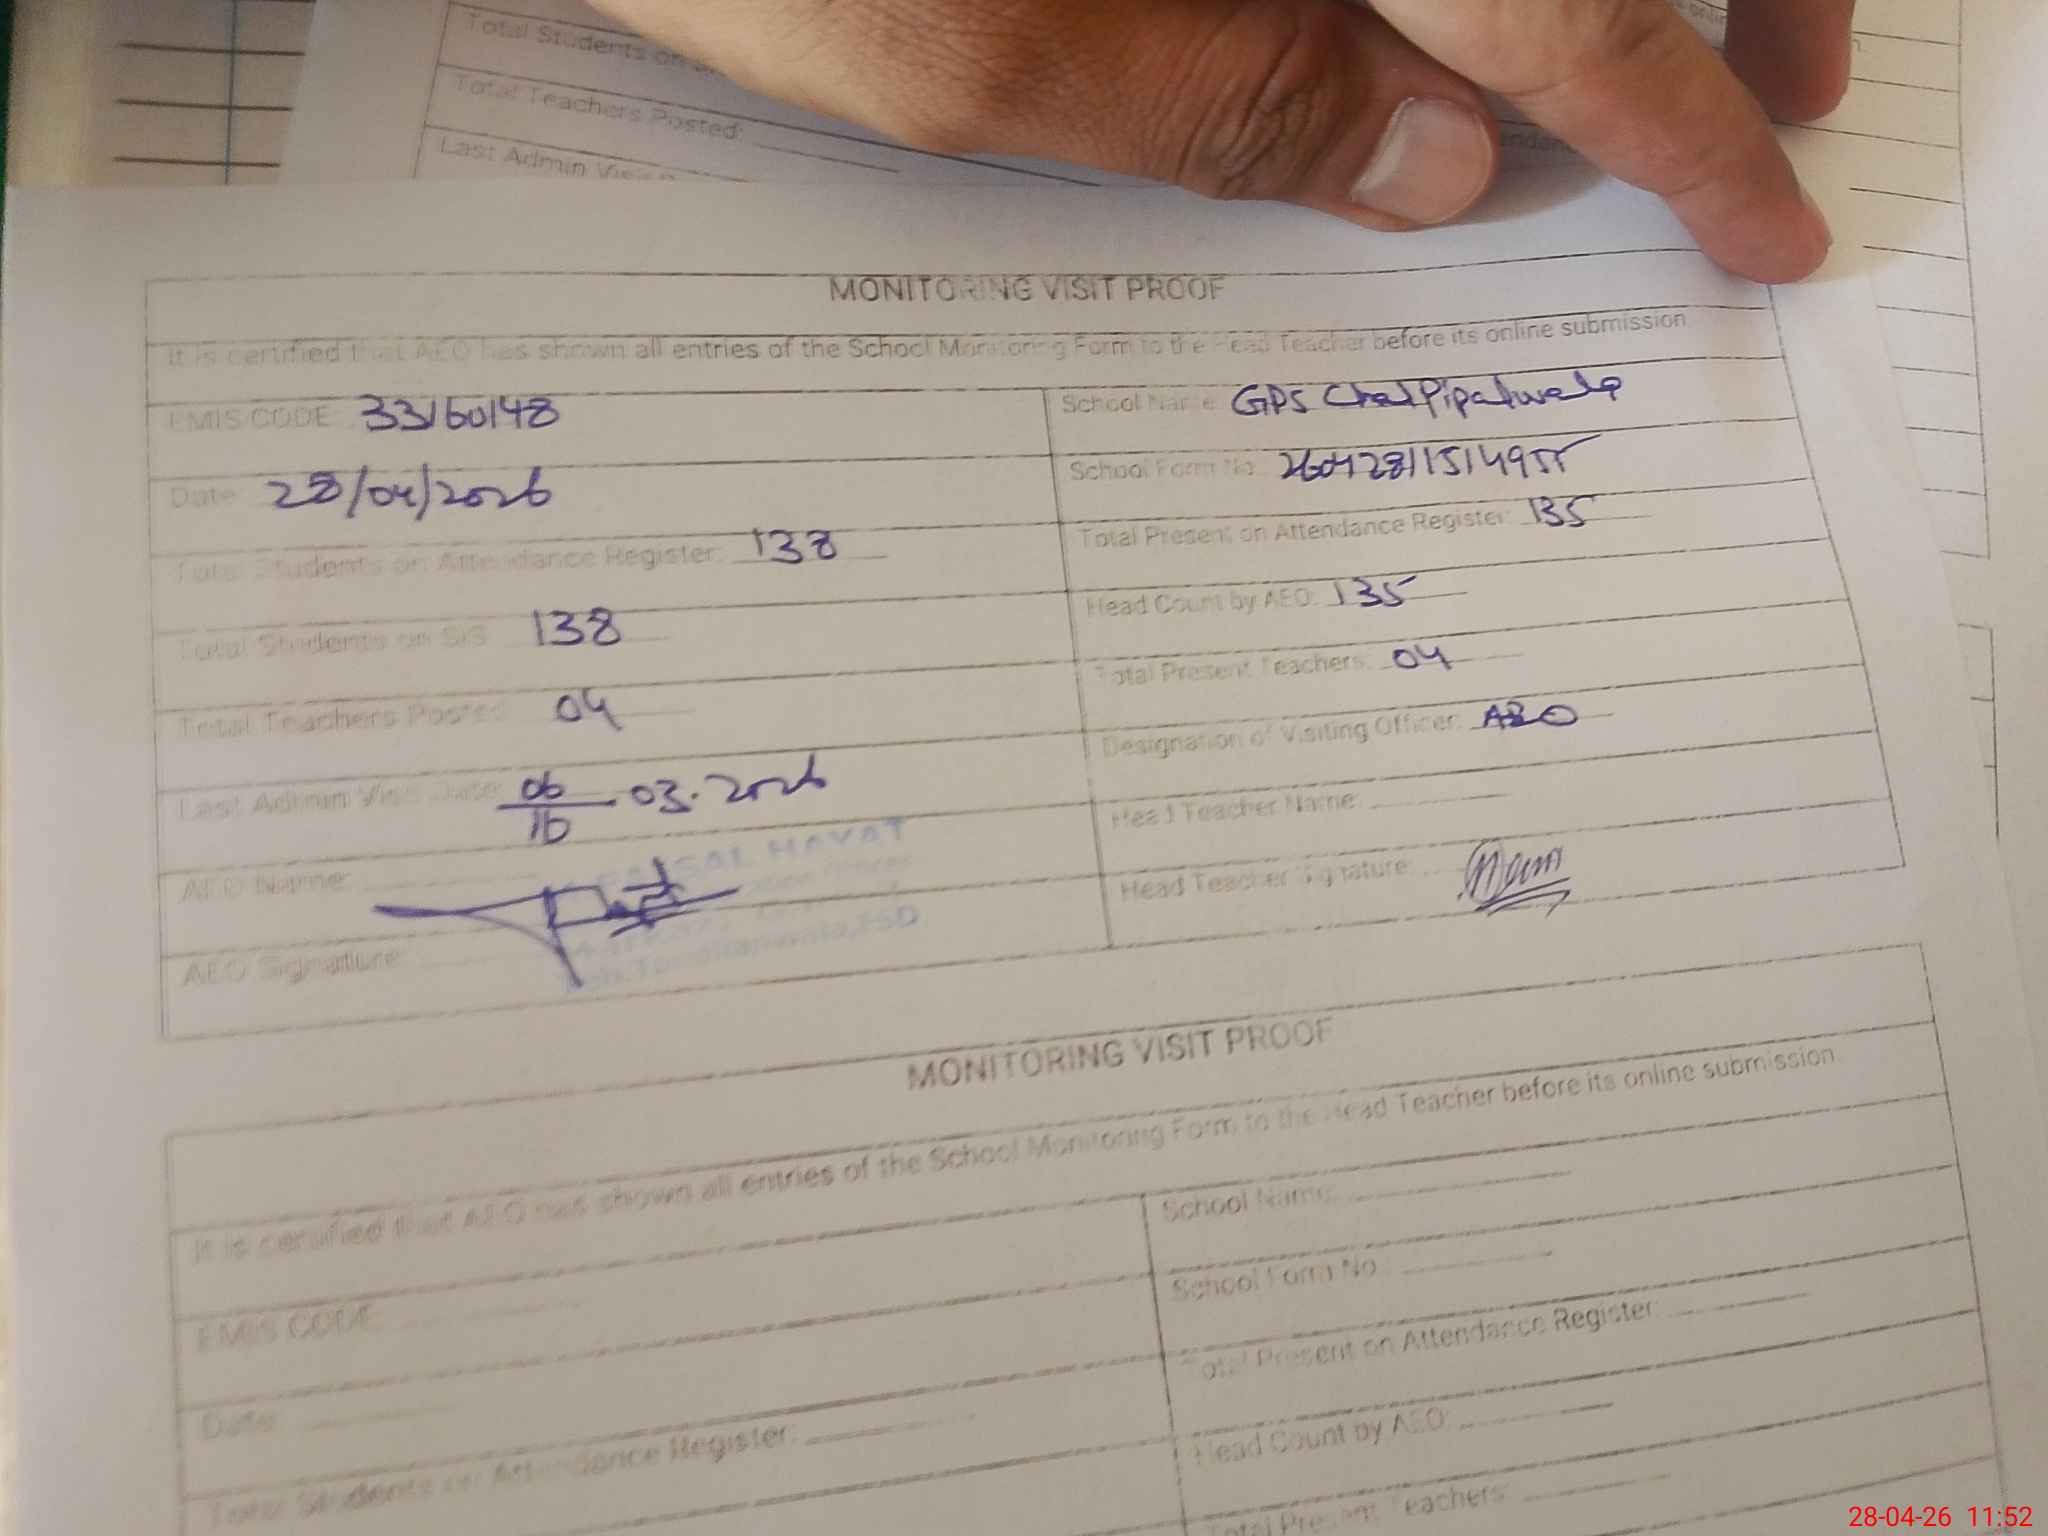 Total Students on
Total Teachers Posted:
Last Admin Visit
MONITORING VISIT PROOF
It is certified that AEO has shown all entries of the School Monitoring Form to the Head Teacher before its online submission
EMIS CODE: 33160148
School Name: GPS Chak Pipalwala
Date: 28/04/2026
School Form No.
Total Students on Attendance Register: 138
Total Present on Attendance Register: 135
Total Students on SIS 138
Head Count by AEO: 135
Total Teachers Posted 04
Total Present Teachers: 04
Last Admin Visit Date: 06/16 03.2026
Designation of Visiting Officer: AEO
AEO Name:
FAISAL HAYAT
Head Teacher Name:
AEO Signature:
FSD
Head Teacher Signature:
MONITORING VISIT PROOF
It is certified that AEO has shown all entries of the School Monitoring Form to the Head Teacher before its online submission
EMIS CODE
School Name:
Date
School Form No.:
Total Students on Attendance Register:
Total Present on Attendance Register:
Head Count by AEO:
Total Present Teachers:
28-04-26 11:52